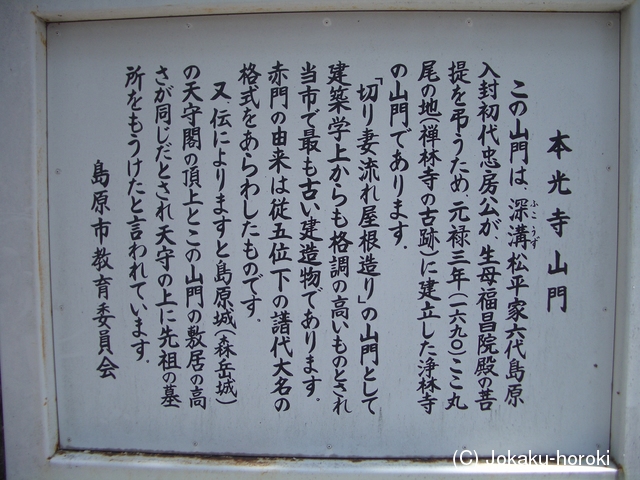 本光寺山門
この山門は、深溝松平家六代島原
ふこうず
入封初代忠房公が、生母福昌院殿の菩
提を弔うため、元禄三年(一六九〇)ここ丸
尾の地(禅林寺の古跡)に建立した浄林寺
の山門であります。
「切り妻流れ屋根造り」の山門として
建築学上からも格調の高いものとされ
当市で最も古い建造物であります。
赤門の由来は従五位下の譜代大名の
格式をあらわしたものです。
又、伝によりますと島原城(森岳城)
の天守閣の頂上とこの山門の敷居の高
さが同じだとされ天守の上に先祖の墓
所をもうけたと言われています。
島原市教育委員会
(C) Jokaku-horoki